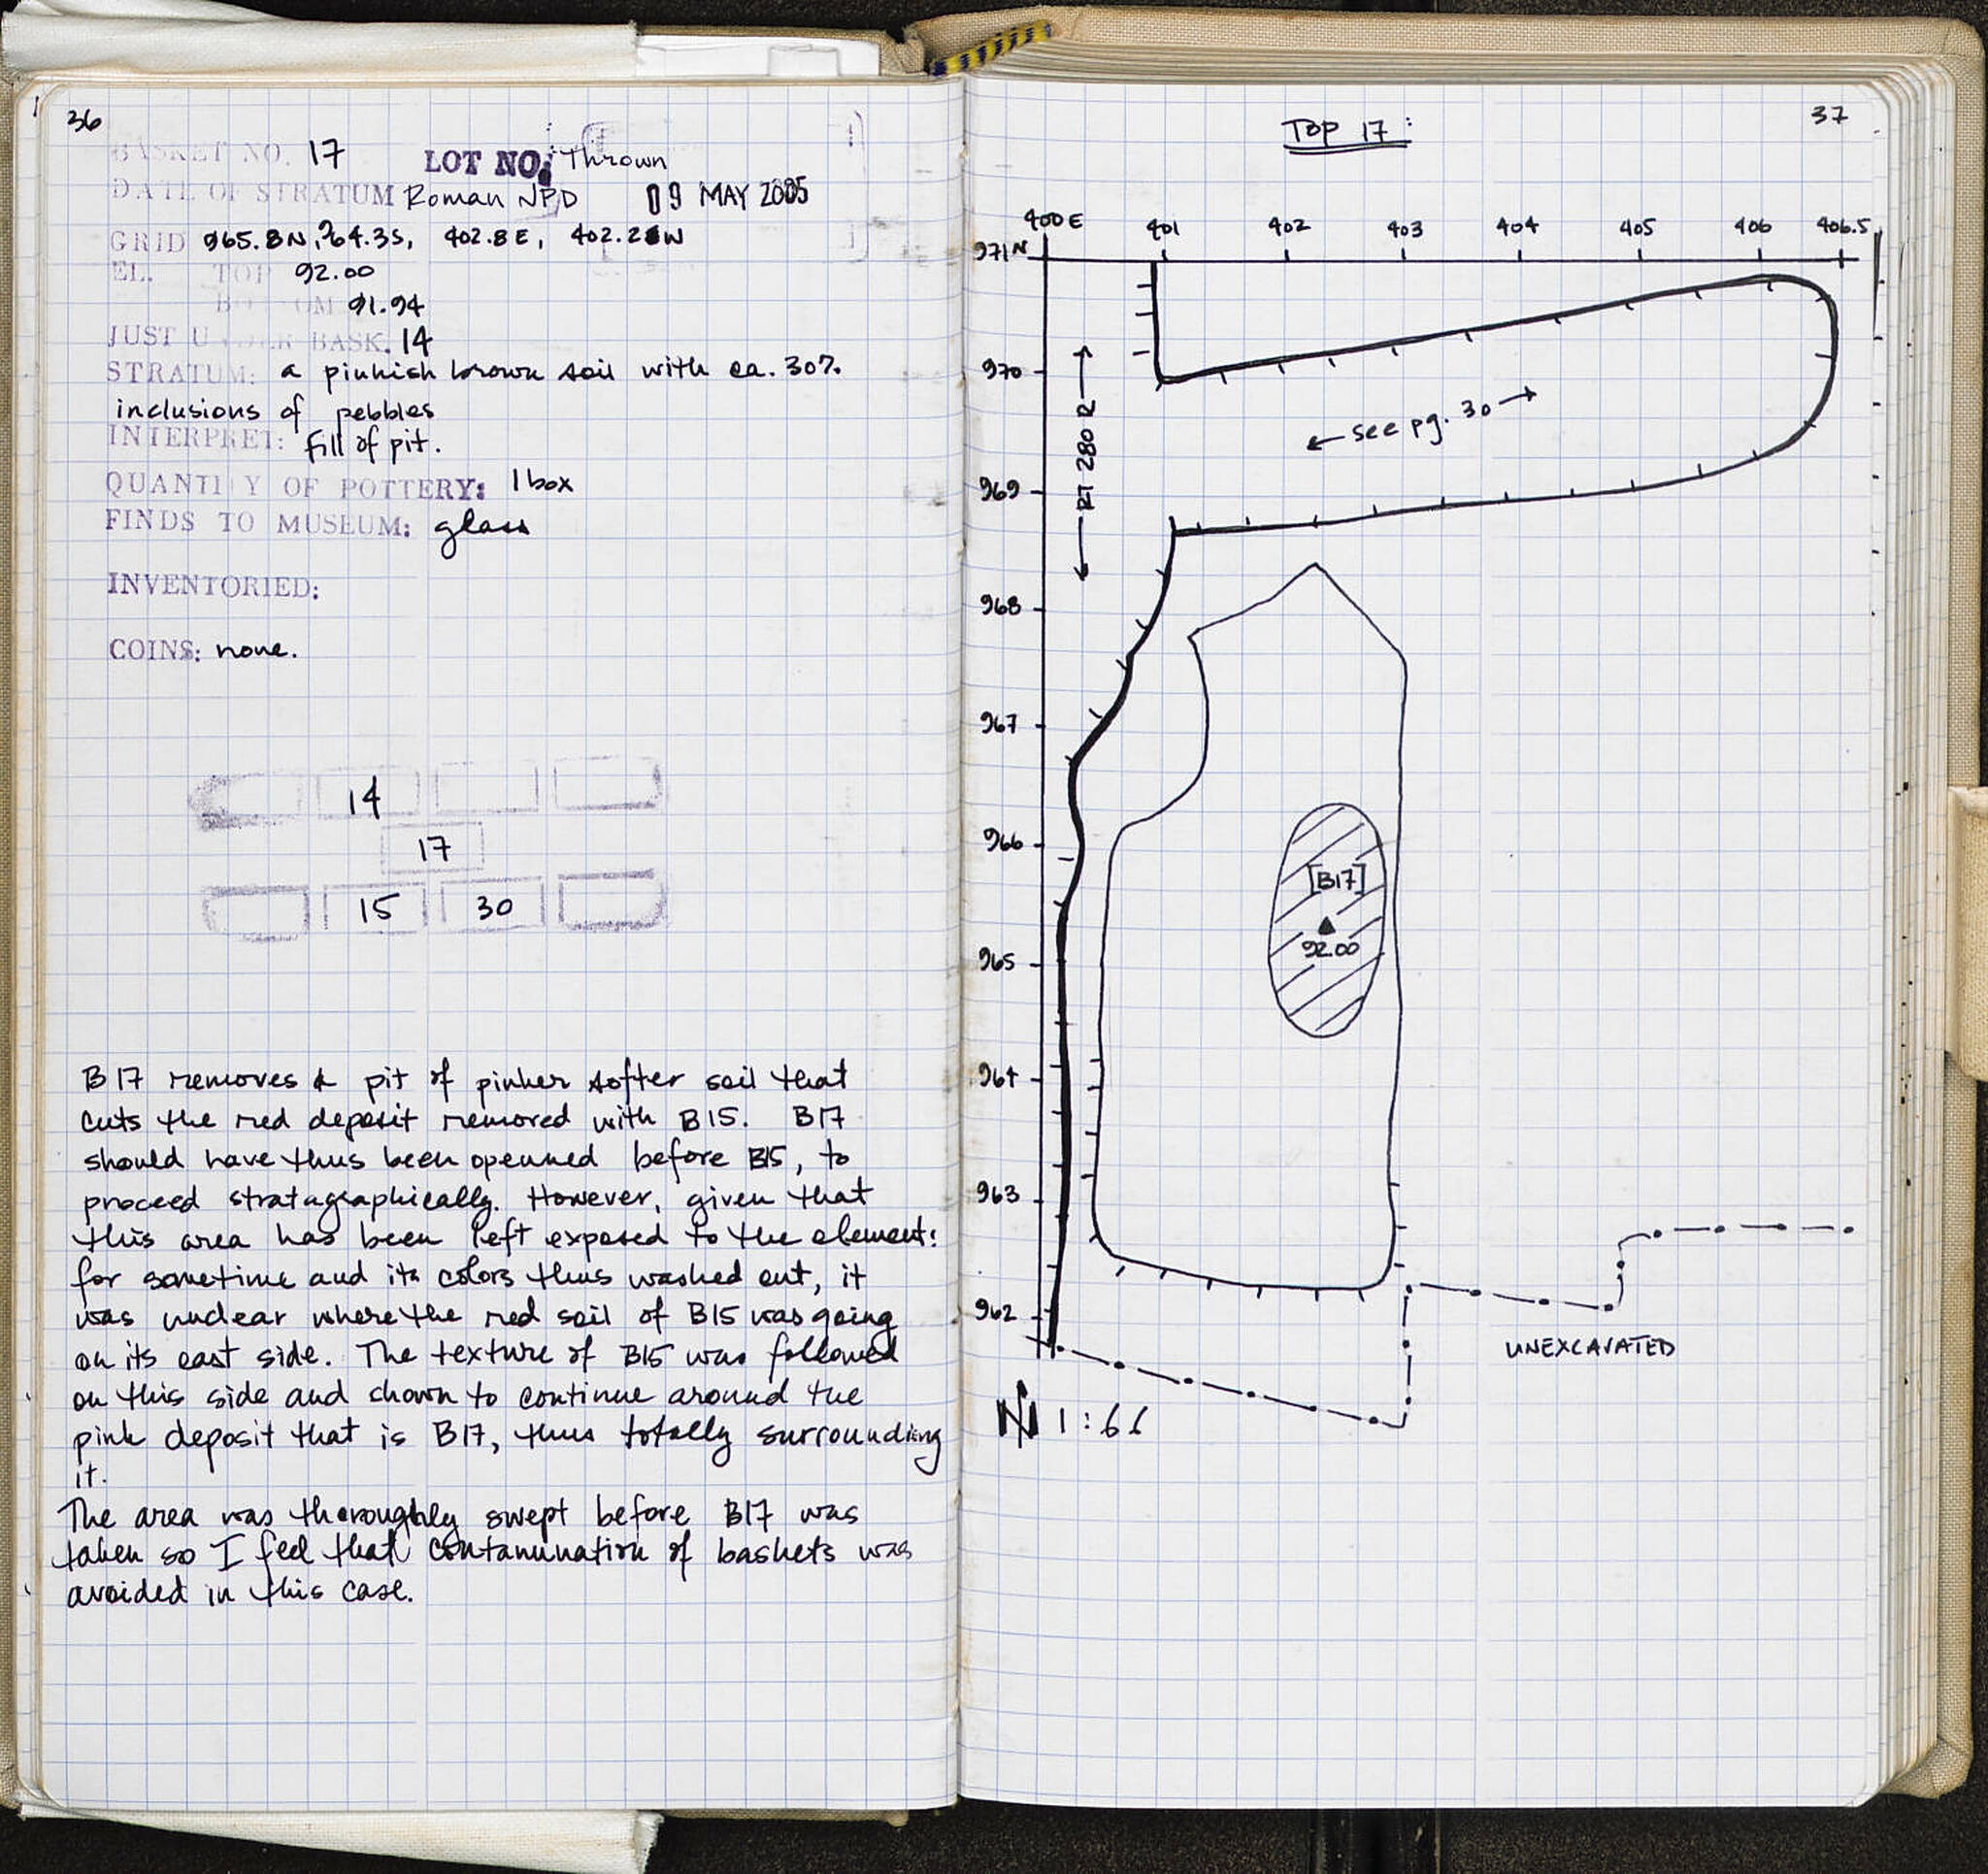 36
BASKET NO. 17 LOT NO: Thrown
DATE OF STRATUM Roman NPD 09 MAY 2005
GRID 965.8N, 964.3S, 402.8E, 402.2W
EL. TOP 92.00
BOTTOM 91.94
JUST UNDER BASK. 14
STRATUM: a pinkish brown soil with ca. 30%
inclusions of pebbles
INTERPRET: fill of pit.
QUANTITY OF POTTERY: 1 box
FINDS TO MUSEUM: glass
INVENTORIED:
COINS: none.
14
17
15 30
B17 removes a pit of pinker softer soil that
cuts the red deposit removed with B15. B17
should have thus been openned before B15, to
proceed stratagraphically. However, given that
this area has been left exposed to the element:
for sometime and its colors thus washed out, it
was unclear where the red soil of B15 was going
on its east side. The texture of B15 was followed
on this side and shown to continue around the
pink deposit that is B17, thus totally surrounding
it.
The area was thoroughly swept before B17 was
taken so I feel that contamination of baskets was
avoided in this case.
37
Top 17:
400E 401 402 403 404 405 406 406.5
971N
970
969
968
967
966
965
964
963
962
RT 280 R
← see pg. 30 →
[B17]
92.00
UNEXCAVATED
N 1:66